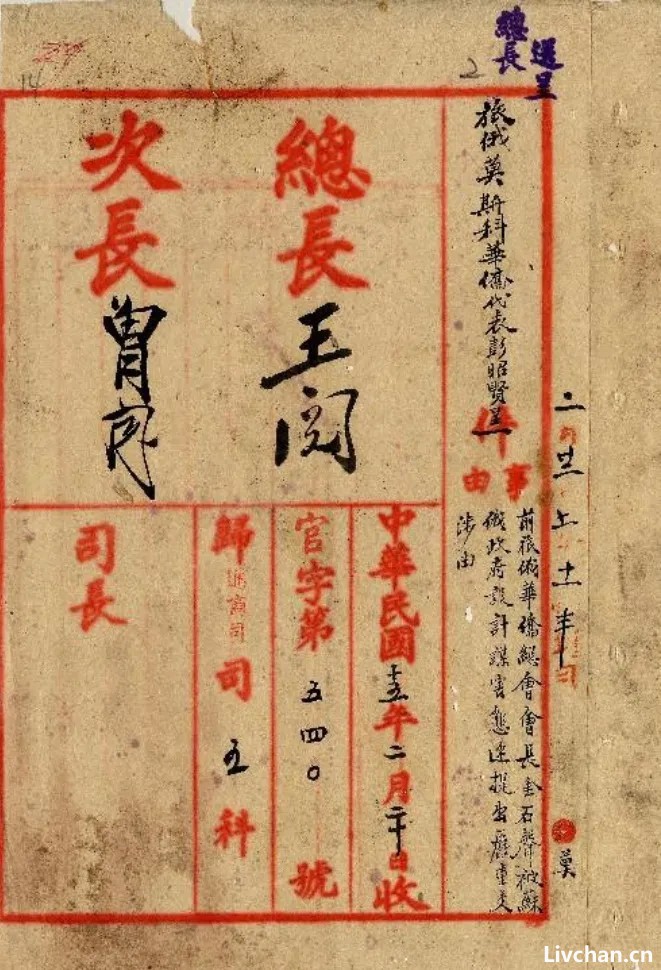 總長
2
14
莫
旅俄莫斯科華僑代表彭昭賢呈一件
事由
前旅俄華僑總會會長金石聲被蘇
俄政府設計謀害懇速提出嚴重交
涉由
總長
王閱
次長
曾閱
中華民國十五年二月二十日收
官字第五四〇號
歸通商司司五科
司長
Livchan.cn